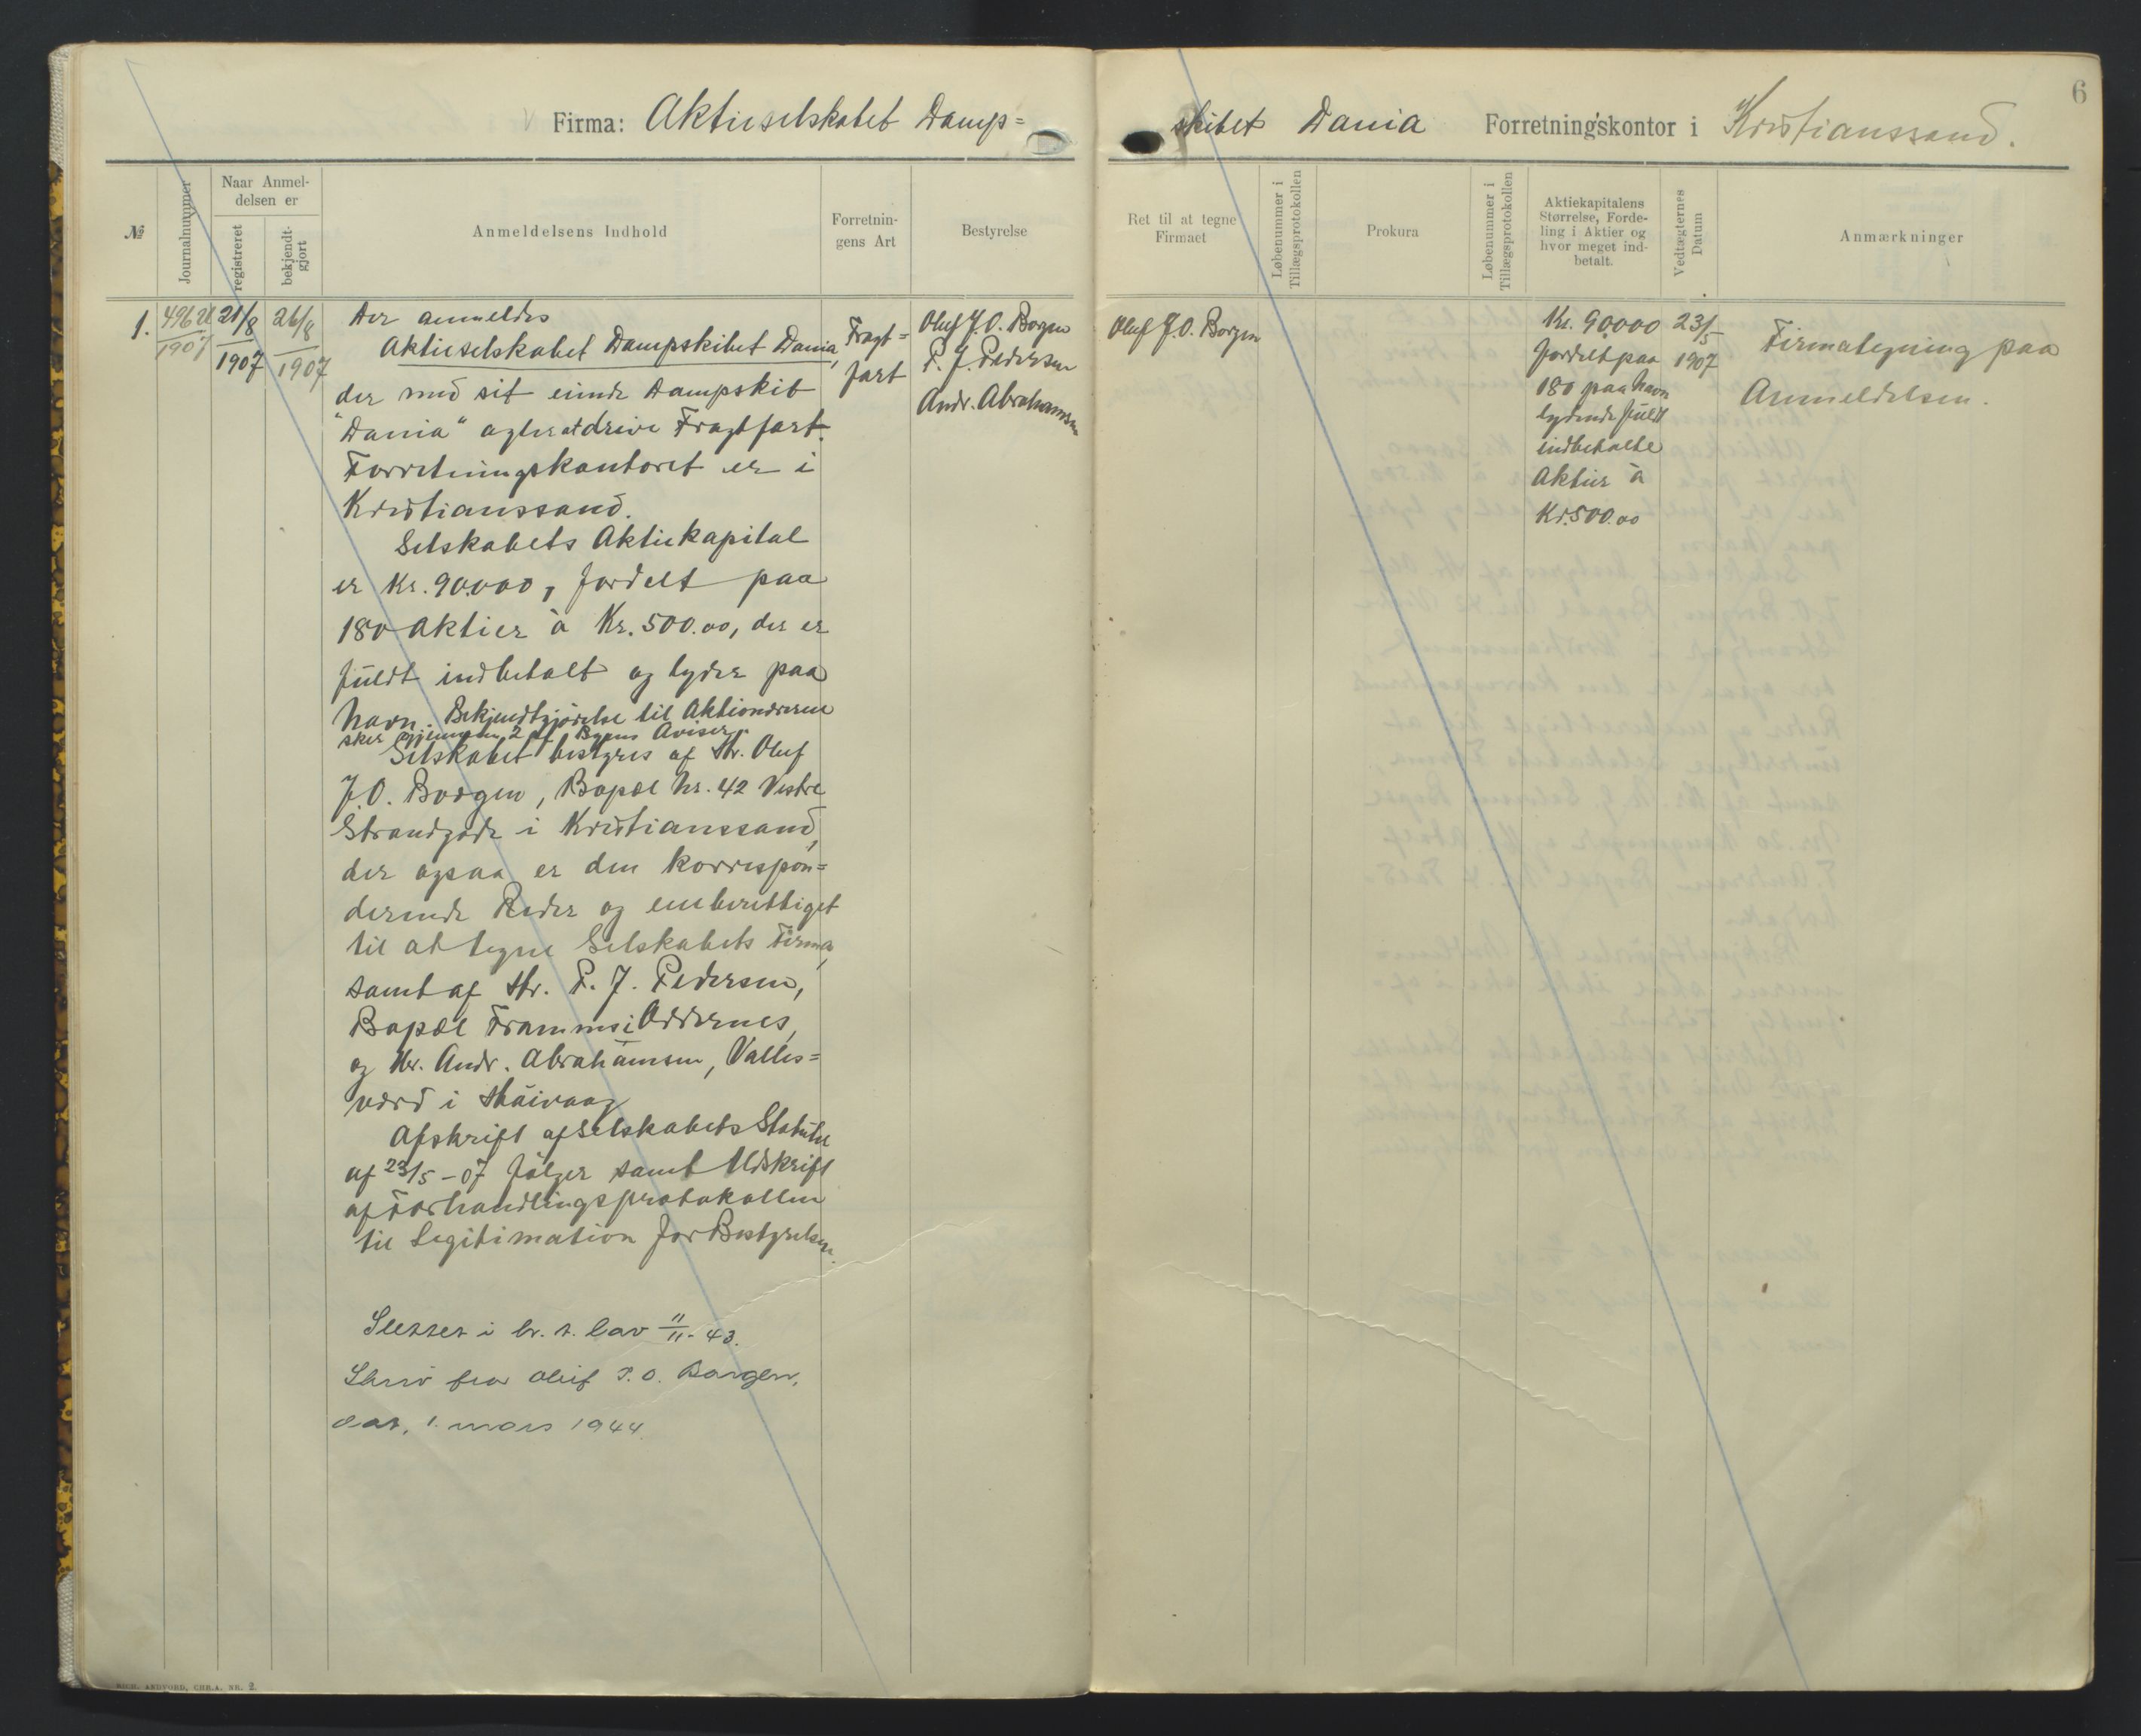 6
Firma: Aktieselskabet Damp=
skibet Dania Forretningskontor i Kristianssand.
№
Journalnummer
Naar Anmel-
delsen er
registreret
bekjendt-
gjort
Anmeldelsens Indhold
Forretnin-
gens Art
Bestyrelse
Ret til at tegne
Firmaet
Løbenummer i
Tillægsprotokollen
Prokura
Løbenummer i
Tillægsprotokollen
Aktiekapitalens
Størrelse, Forde-
ling i Aktier og
hvor meget ind-
betalt.
Vedtægternes
Datum
Anmærkninger
1.
1907
21/8
1907
26/8
1907
Der anmeldes
Aktieselskabet Dampskibet Dania,
der med sit eiende Dampskib
"Dania" agter at drive Fragtfart.
Forretningskontoret er i
Kristianssand.
Selskabets Aktiekapital
er Kr. 90.000, fordelt paa
180 Aktier à Kr. 500.00, der er
fuldt indbetalt og lyder paa
Navn. Bekjendtgjørelse til Aktionærerne
sker gjennem 2 af Byens Aviser.
Selskabet bestyres af Hr. Oluf
J.O. Borgen, Bopæl Nr. 42 Vestre
Strandgade i Kristianssand,
der ogsaa er den korrespon=
derende Reder og eneberettiget
til at tegne Selskabets Firma,
samt af Hr. P. J. Pedersen,
Bopæl Framnes i Oddernes,
og Hr. Andr. Abrahamsen, Valles=
værd i Høivaag
Afskrift af Selskabets Statuter
af 23/5 - 07 følger samt Udskrift
af Forhandlingsprotokollen
til Legitimation for Bestyrelsen.
Slettet i h. t. lov 11/11-43.
Skriv fra Oluf J. O. Borgen,
dat. 1. mars 1944.
Fragt=
fart
Oluf J.O. Borgen
P. J. Pedersen
Andr. Abrahamsen
Oluf J.O. Borgen
Kr. 90000
fordelt paa
180 paa Navn
lydende fuldt
indbetalte
Aktier à
Kr. 500.00
23/5
1907
Firmategning paa
Anmeldelsen.
RICH. ANDVORD, CHR.A. NR. 2.